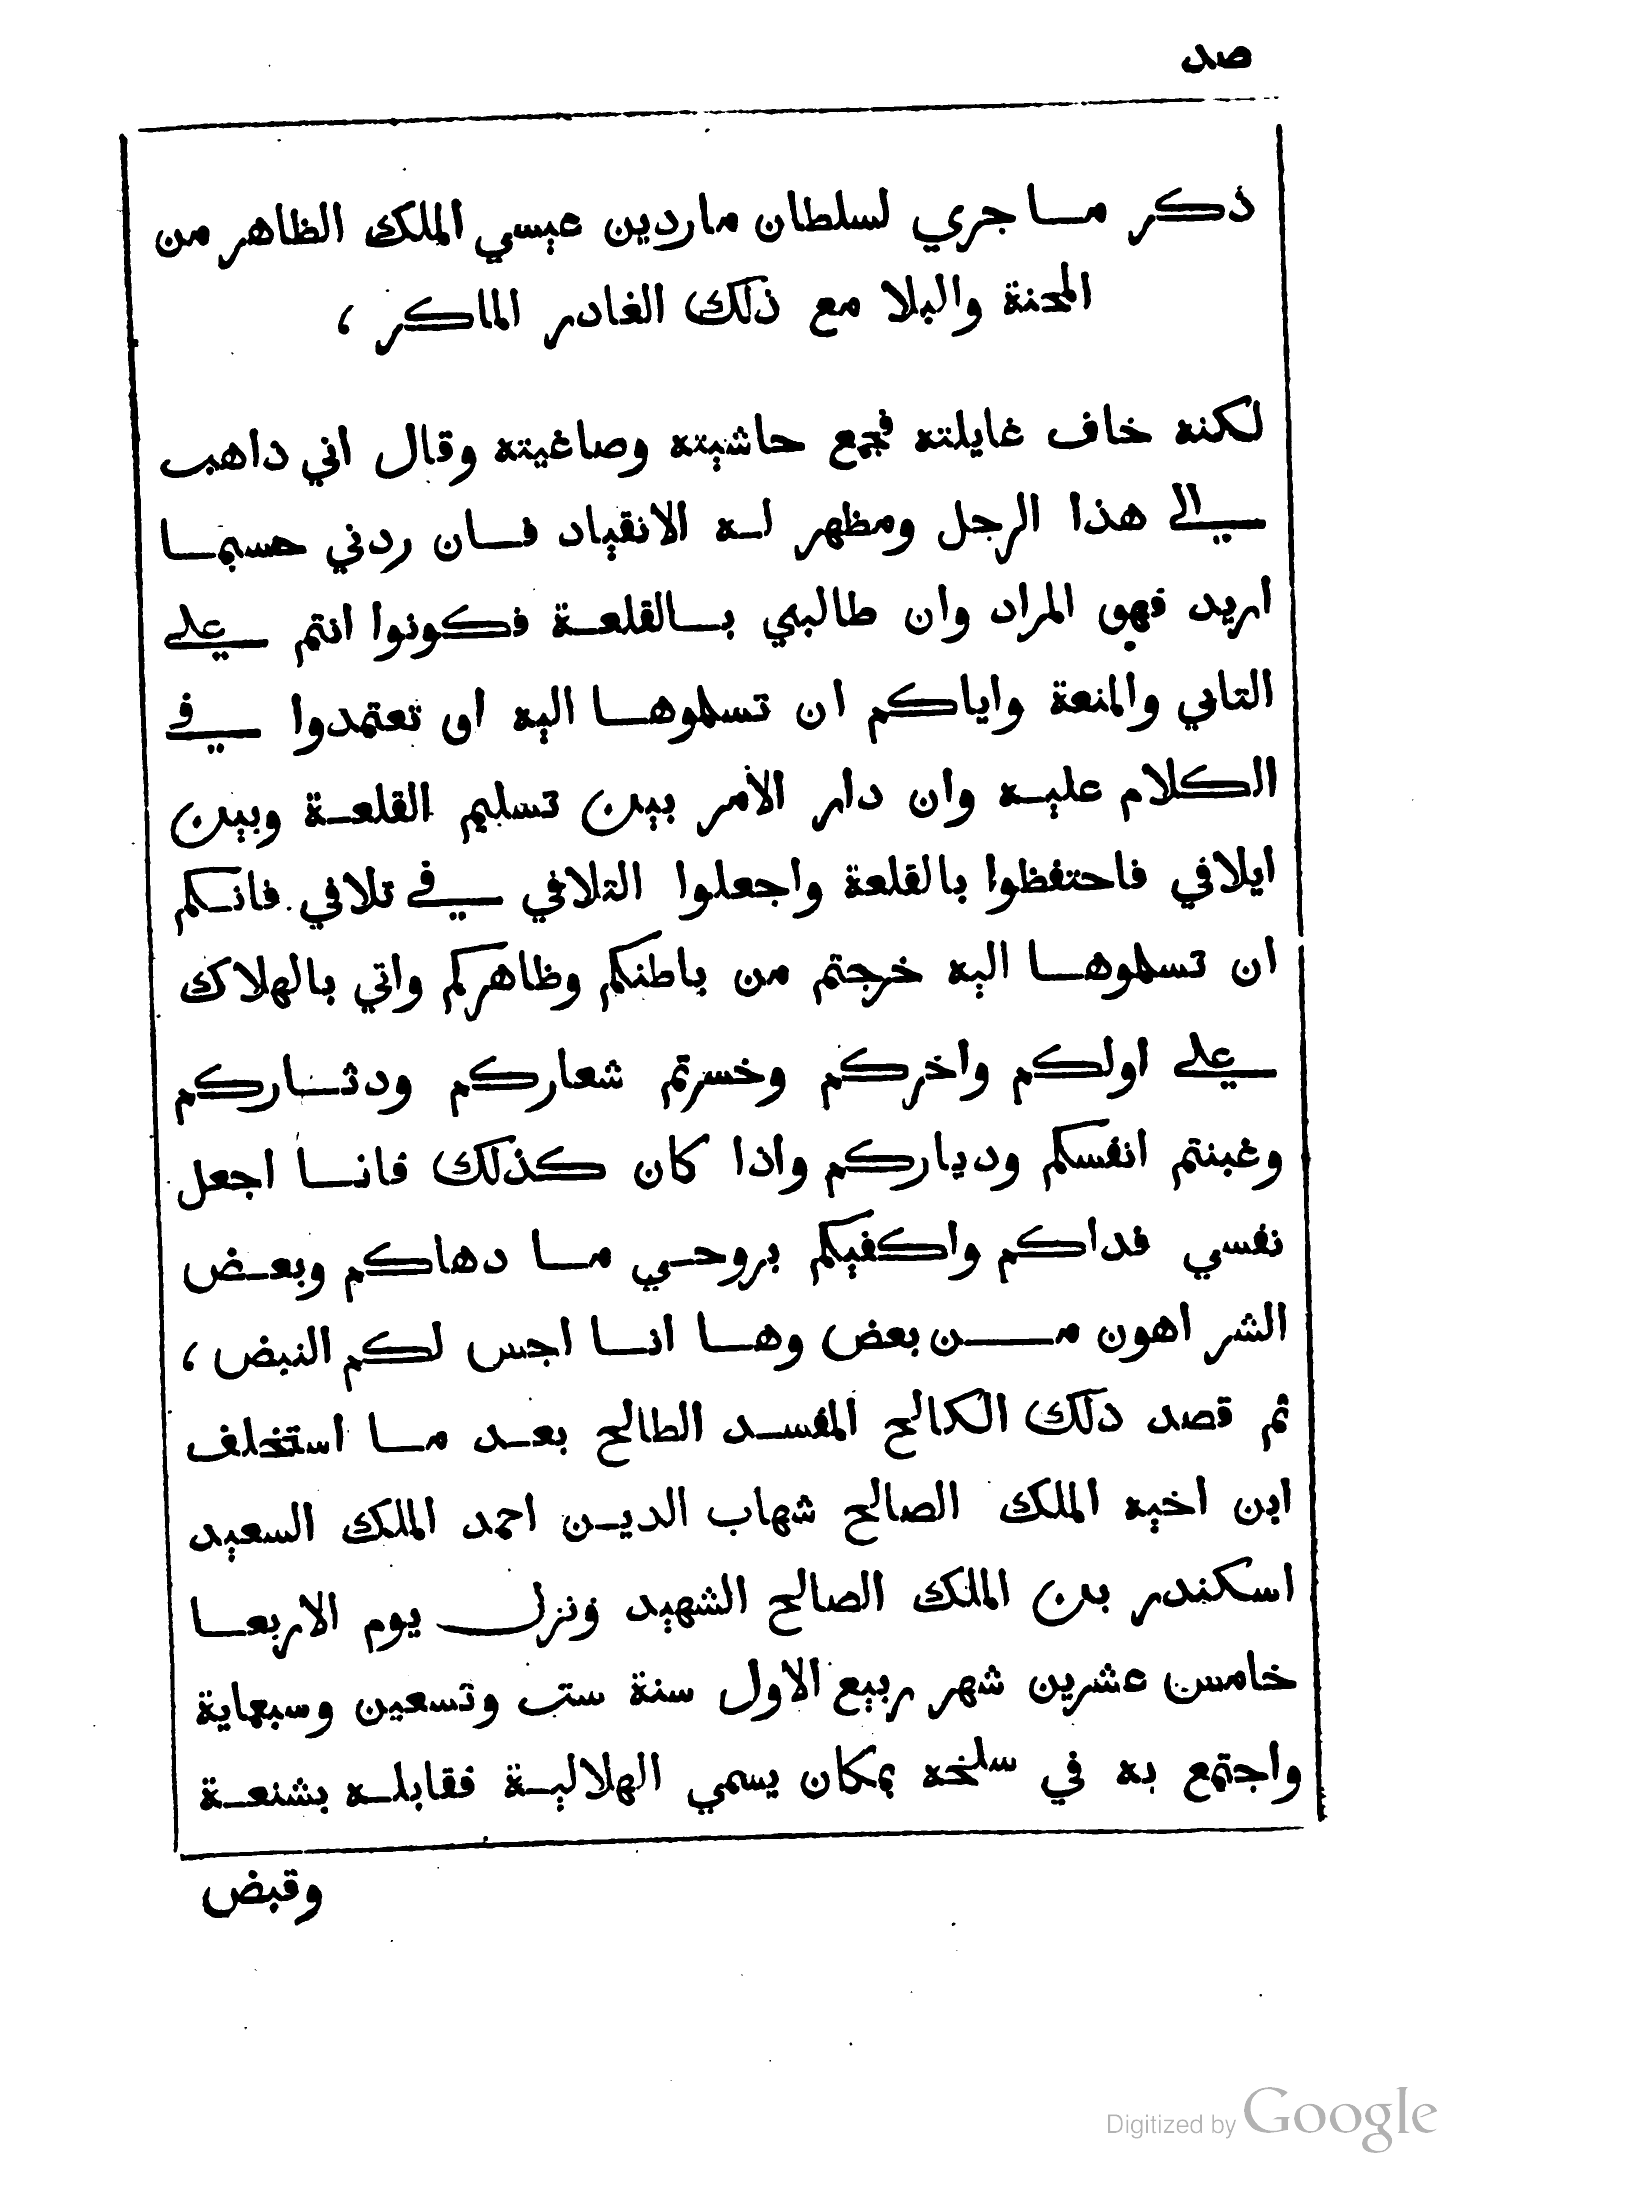 صد
ذكر ما جري لسلطان ماردين عيسي الملك الظاهر من
المحنة والبلا مع ذلك الغادر الماكر ،
لكنه خاف غايلته فجمع حاشيته وصاغيته وقال اني داهب
الي هذا الرجل ومظهر له الانقياد فان ردني حسبما
اريد فهو المراد وان طالبني بالقلعة فكونوا انتم علي
التابي والمنعة واياكم ان تسلموها اليه او تعتمدوا في
الكلام عليه وان دار الأمر بين تسليم القلعة وبين
ايلافي فاحتفظوا بالقلعة واجعلوا التلافي في تلافي فانكم
ان تسلموها اليه خرجتم من باطنكم وظاهركم واتي بالهلاك
علي اولكم واخركم وخسرتم شعاركم ودثاركم
وغبنتم انفسكم ودياركم واذا كان كذلك فانا اجعل
نفسي فداكم واكفيكم بروحي ما دهاكم وبعض
الشر اهون من بعض وها انا اجس لكم النبض ،
ثم قصد دلك الكالح المفسد الطالح بعد ما استخلف
ابن اخيه الملك الصالح شهاب الدين احمد الملك السعيد
اسكندر بن الملك الصالح الشهيد ونزل يوم الاربعا
خامس عشرين شهر ربيع الاول سنة ست وتسعين وسبعماية
واجتمع به في سلخه بمكان يسمي الهلالية فقابله بشنعة
وقبض
Digitized by Google